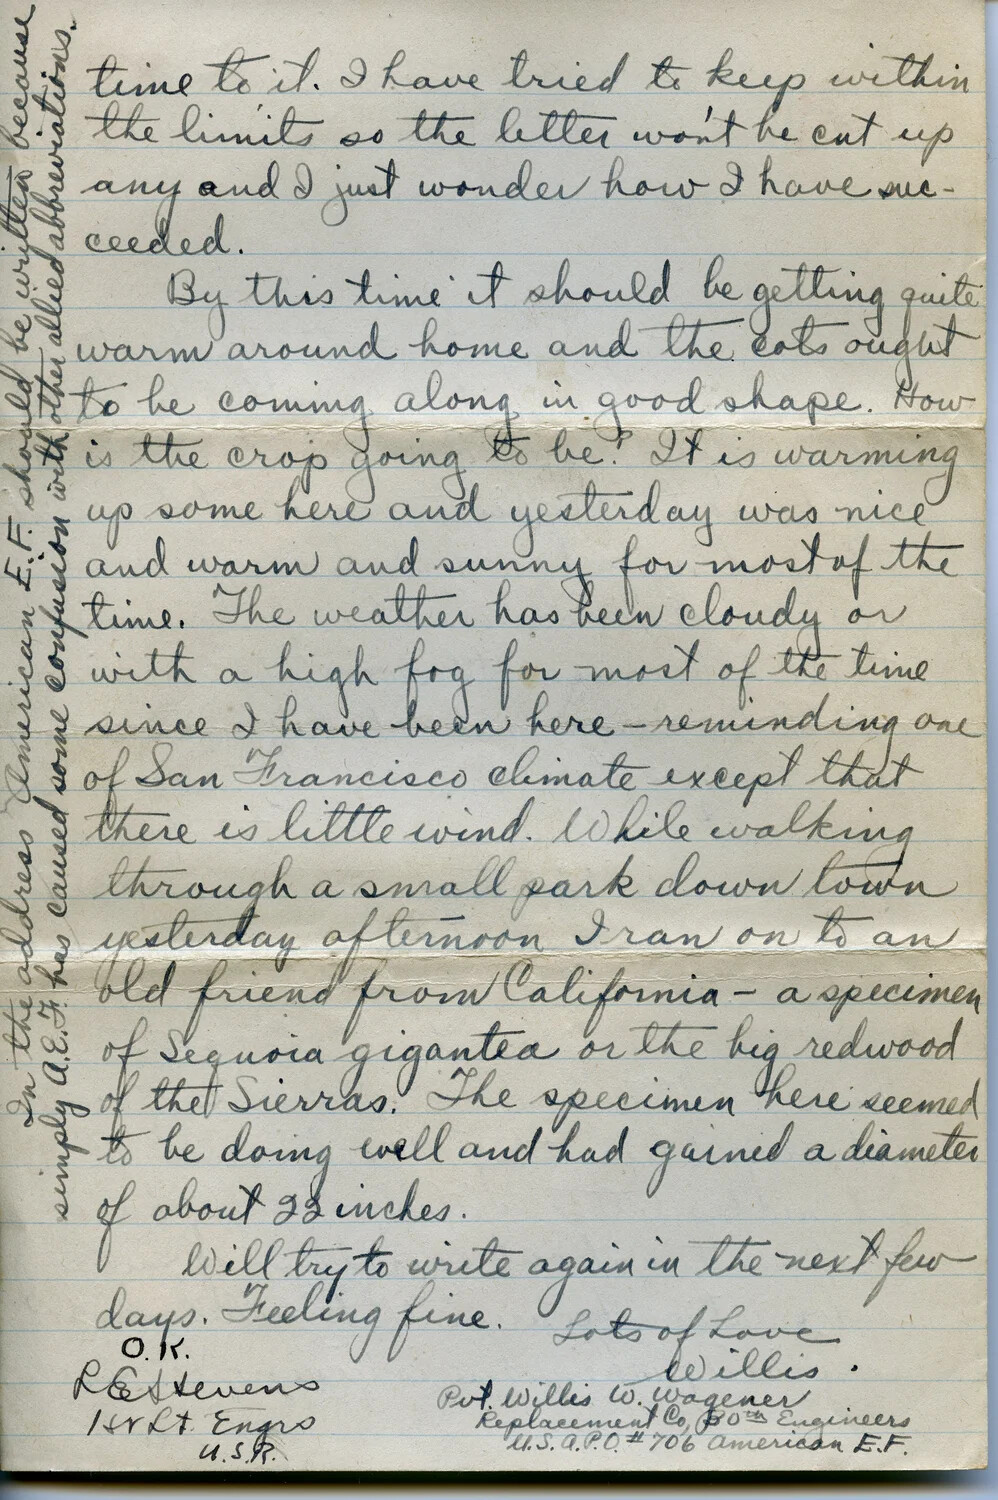 time to it. I have tried to keep within
the limits so the letter won't be cut up
any and I just wonder how I have suc-
ceeded.
By this time it should be getting quite
warm around home and the cots ought
to be coming along in good shape. How
is the crop going to be? It is warming
up some here and yesterday was nice
and warm and sunny for most of the
time. The weather has been cloudy or
with a high fog for most of the time
since I have been here – reminding one
of San Francisco climate except that
there is little wind. While walking
through a small park down town
yesterday afternoon I ran on to an
old friend from California – a specimen
of Sequoia gigantea or the big redwood
of the Sierras. The specimen here seemed
to be doing well and had gained a diameter
of about 22 inches.
Will try to write again in the next few
days. Feeling fine.
Lots of Love
Willis.
Pvt. Willis W. Wagener
Replacement Co, 20th Engineers
U.S.A.P.O. # 706 American E.F.
O.K.
R E Stevens
1st Lt. Engrs
U.S.R.
In the address American E.F. should be written because
simply A.E.F. has caused some confusion with other allied abbreviations.